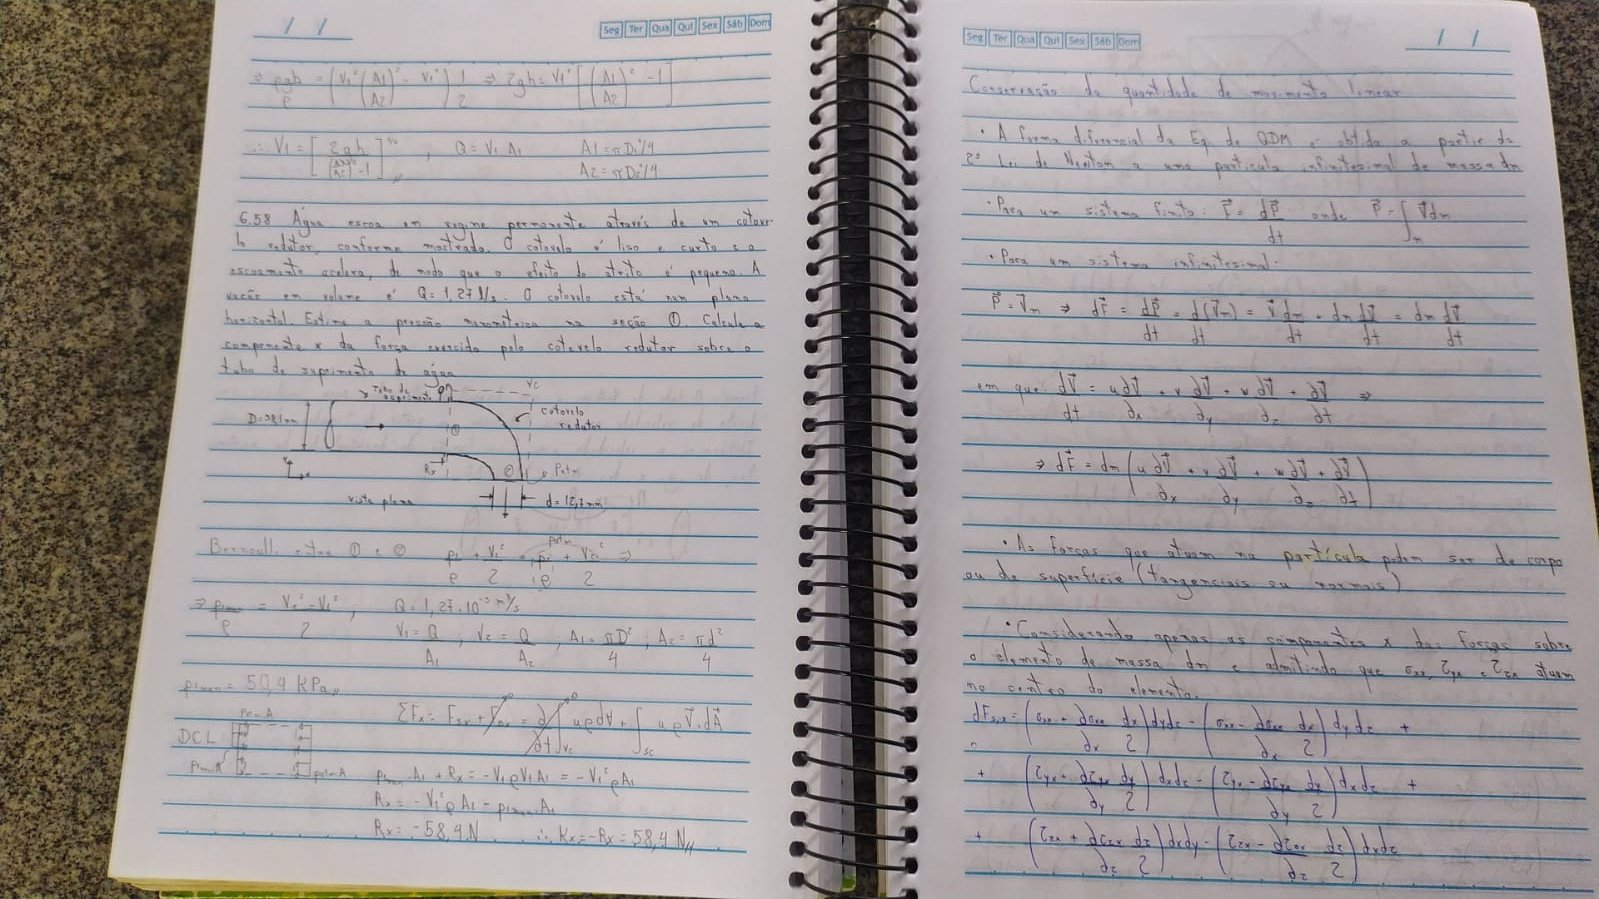 / /
Seg Ter Qua Qui Sex Sáb Dom
⇒ ρgh/ρ = (V1² (A1/A2)² - V1²) 1/2 ⇒ 2gh = V1² [(A1/A2)² - 1]
∴ V1 = [2gh / ((A1/A2)² - 1)]^1/2 , Q = V1 A1 A1 = πD1²/4
A2 = πD2²/4
6.58 Água escoa em regime permanente através de um cotove-
lo redutor, conforme mostrado. O cotovelo é liso e curto e o
escoamento acelera, de modo que o efeito do atrito é pequeno. A
vazão em volume é Q = 1,27 l/s. O cotovelo está num plano
horizontal. Estime a pressão manométrica na seção ①. Calcule a
componente x da força exercida pelo cotovelo redutor sobre o
tubo de suprimento de água.
Tubo de suprimento
VC
cotovelo redutor
D=38,1mm
①
Rx
②
Patm
vista plana
d=12,7mm
Bernoulli entre ① e ② p1/ρ + V1²/2 = p2/ρ + V2²/2 ⇒
patm
⇒ p1man/ρ = (V2² - V1²)/2 ; Q = 1,27·10⁻³ m³/s
V1 = Q/A1 ; V2 = Q/A2 ; A1 = πD²/4 ; A2 = πd²/4
p1man = 50,4 KPa
ΣFx = Fsx + Fbx = ∂/∂t ∫vc uρd∀ + ∫sc uρV⃗.dA⃗
DCL
patm A
p1man A
patm A
p1man A1 + Rx = -V1ρV1A1 = -V1²ρA1
Rx = -V1²ρA1 - p1manA1
Rx = -58,4N ∴ Kx = -Rx = 58,4N
Seg Ter Qua Qui Sex Sáb Dom
/ /
Conservação da quantidade de movimento linear
· A forma diferencial da Eq. de QDM é obtida a partir da
2ª Lei de Newton a uma partícula infinitesimal de massa dm
· Para um sistema finito: F⃗ = dP⃗/dt onde P⃗ = ∫m V⃗dm
· Para um sistema infinitesimal:
P⃗ = V⃗m ⇒ dF⃗ = dP⃗/dt = d(V⃗m)/dt = V⃗ dm/dt + dm dV⃗/dt = dm dV⃗/dt
em que: dV⃗/dt = u ∂V⃗/∂x + v ∂V⃗/∂y + w ∂V⃗/∂z + ∂V⃗/∂t ⇒
⇒ dF⃗ = dm (u ∂V⃗/∂x + v ∂V⃗/∂y + w ∂V⃗/∂z + ∂V⃗/∂t)
· As forças que atuam na partícula podem ser de corpo
ou de superfície (tangenciais ou normais)
· Considerando apenas as componentes x das forças sobre
o elemento de massa dm e admitindo que σxx, τyx e τzx atuam
no centro do elemento.
dFs,x = (σxx + ∂σxx/∂x dx/2) dydz - (σxx - ∂σxx/∂x dx/2) dydz +
+ (τyx + ∂τyx/∂y dy/2) dxdz - (τyx - ∂τyx/∂y dy/2) dxdz +
+ (τzx + ∂τzx/∂z dz/2) dxdy - (τzx - ∂τzx/∂z dz/2) dxdz